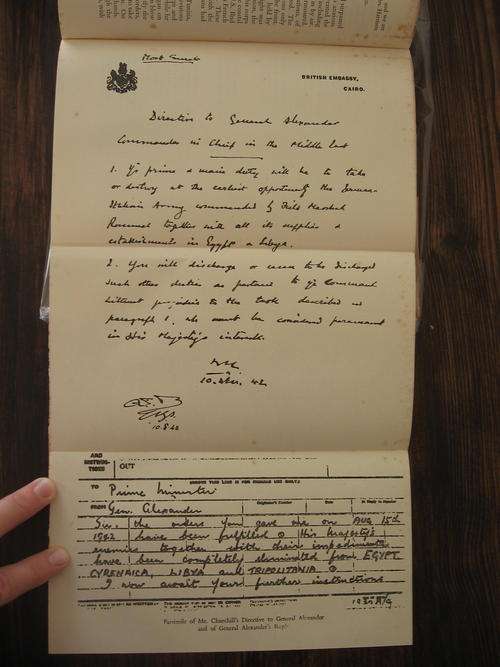 Most Secret
BRITISH EMBASSY,
CAIRO.
Directive to General Alexander
Commander in Chief in the Middle East
1. Yr prime & main duty will be to take
or destroy at the earliest opportunity the German-
Italian Army commanded by Field Marshal
Rommel together with all its supplies &
establishments in Egypt & Libya.
2. You will discharge or cause to be discharged
such other duties as pertain to yr Command
without prejudice to the task described in
paragraph 1, wh must be considered paramount
in His Majesty's interests.
WSC
10. Aug. 42
10.8.42
AND
INSTRUC-
TIONS
OUT
TO Prime Minister
FROM Gen. Alexander
Originator's Number Date In Reply to Number
Sir, the orders you gave me on AUG 15th
1942 have been fulfilled. His Majesty's
enemies together with their impedimenta
have been completely eliminated from EGYPT
CYRENAICA, LIBYA and TRIPOLITANIA.
I now await your further instructions
Facsimile of Mr. Churchill's Directive to General Alexander
and of General Alexander's Reply